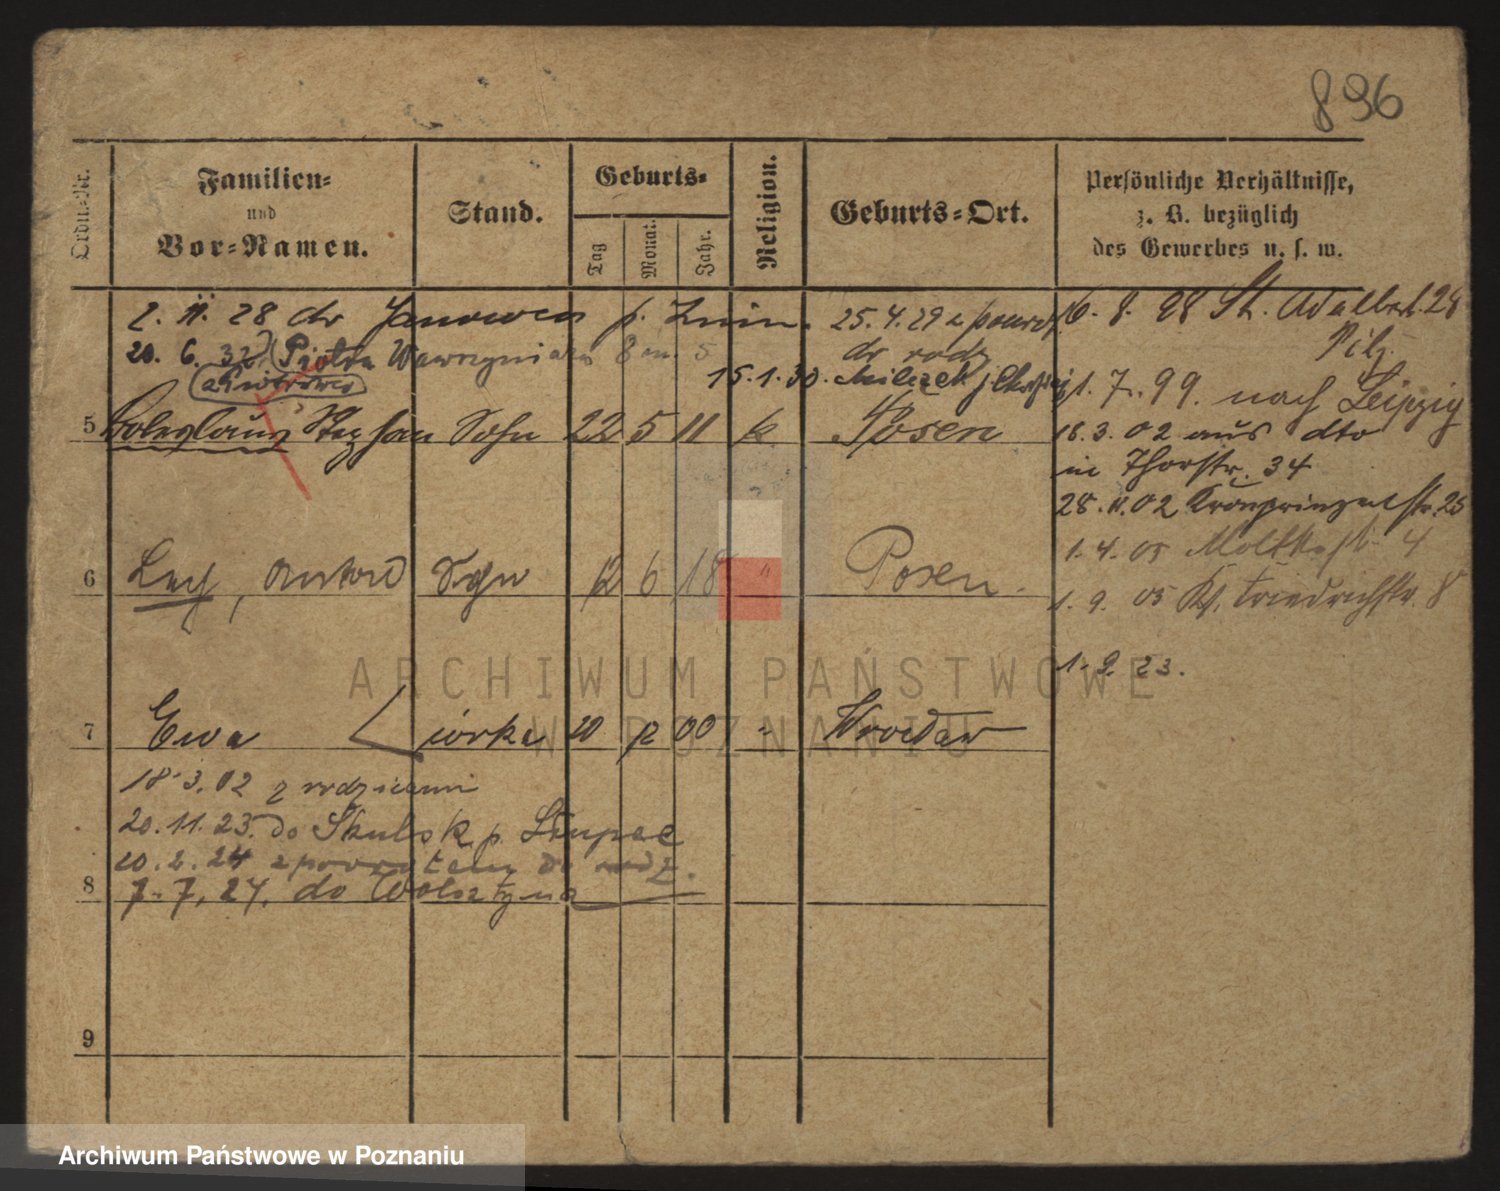 896
Ordn.-Nr.
Familien-
und
Vor-Namen.
Stand.
Geburts-
Tag
Monat.
Jahr.
Religion.
Geburts-Ort.
Persönliche Verhältnisse,
z. B. bezüglich
des Gewerbes u. s. w.
2. 11. 28 do Janowca p. Znin.
20. 6. 32 Piotra Wawrzyniaka 8 m. 5
5 Boleslaus Stephan Sohn 22 5 11 k. Posen
25. 4. 29 z powr.
do rodz
15.1.30.
6 Lech, Antoni Sohn 12 6 18 " Posen.
7 Ewa córka 10 12 00 " Wrocław
18.3.02 z rodzicami
20.11.23. do Skulska p. Słupca
20.2.24 z powrotem do rodz.
8 7.7.24. do Wolsztyna
9
6. 8. 98 St. Adalbert. 28
1. 7. 99. nach Leipzig
18.3.02 aus dto
in Thorstr. 34
28.11.02 Kronprinzenstr. 25
1.4.05 Moltkestr. 4
1.9.05 Friedrichstr. 8
1.9.23.
ARCHIWUM PAŃSTWOWE
W POZNANIU
Archiwum Państwowe w Poznaniu